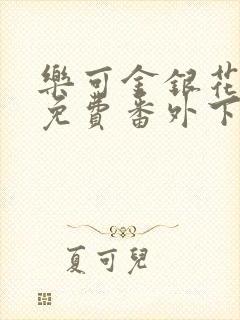 樂可金銀花
免費番外下
夏可兒